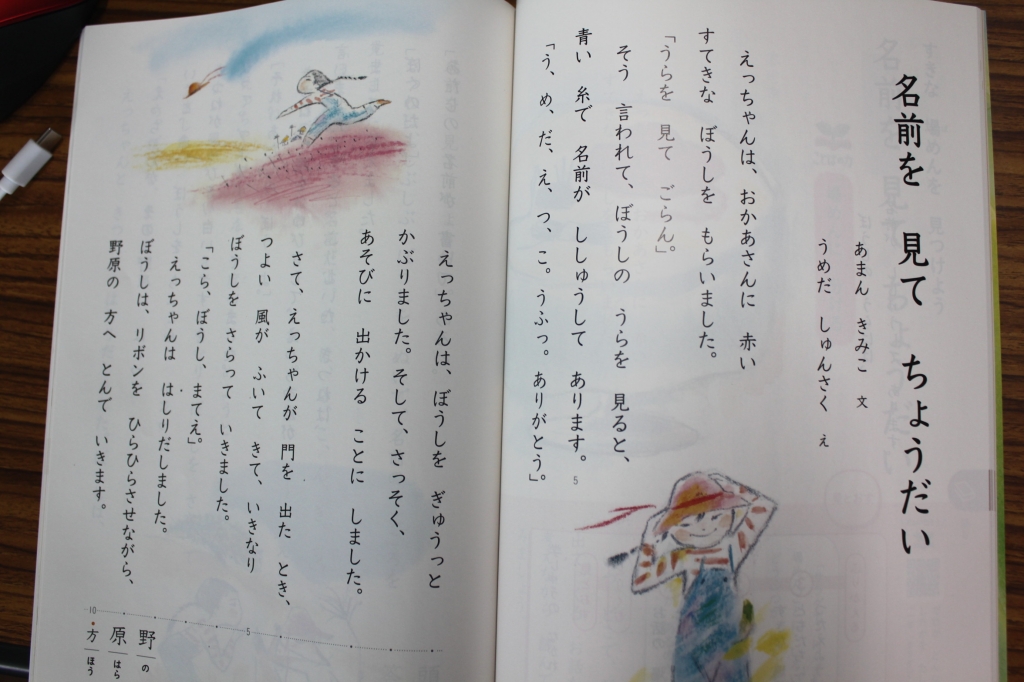 名前を 見て ちょうだい
あまん きみこ 文
うめだ しゅんさく え
えっちゃんは、おかあさんに 赤い
すてきな ぼうしを もらいました。
「うらを 見て ごらん。」
そう 言われて、ぼうしの うらを 見ると、
青い 糸で 名前が ししゅうして あります。
5
「う、め、だ、え、つ、こ。うふっ。ありがとう。」
えっちゃんは、ぼうしを ぎゅうっと
かぶりました。そして、さっそく、
あそびに 出かける ことに しました。
さて、えっちゃんが 門を 出た とき、
つよい 風が ふいて きて、いきなり
5
ぼうしを さらって いきました。
「こら、ぼうし、まてえ。」
えっちゃんは はしりだしました。
ぼうしは、リボンを ひらひらさせながら、
野原の 方へ とんで いきます。
10
野 の
原 はら
方 ほう